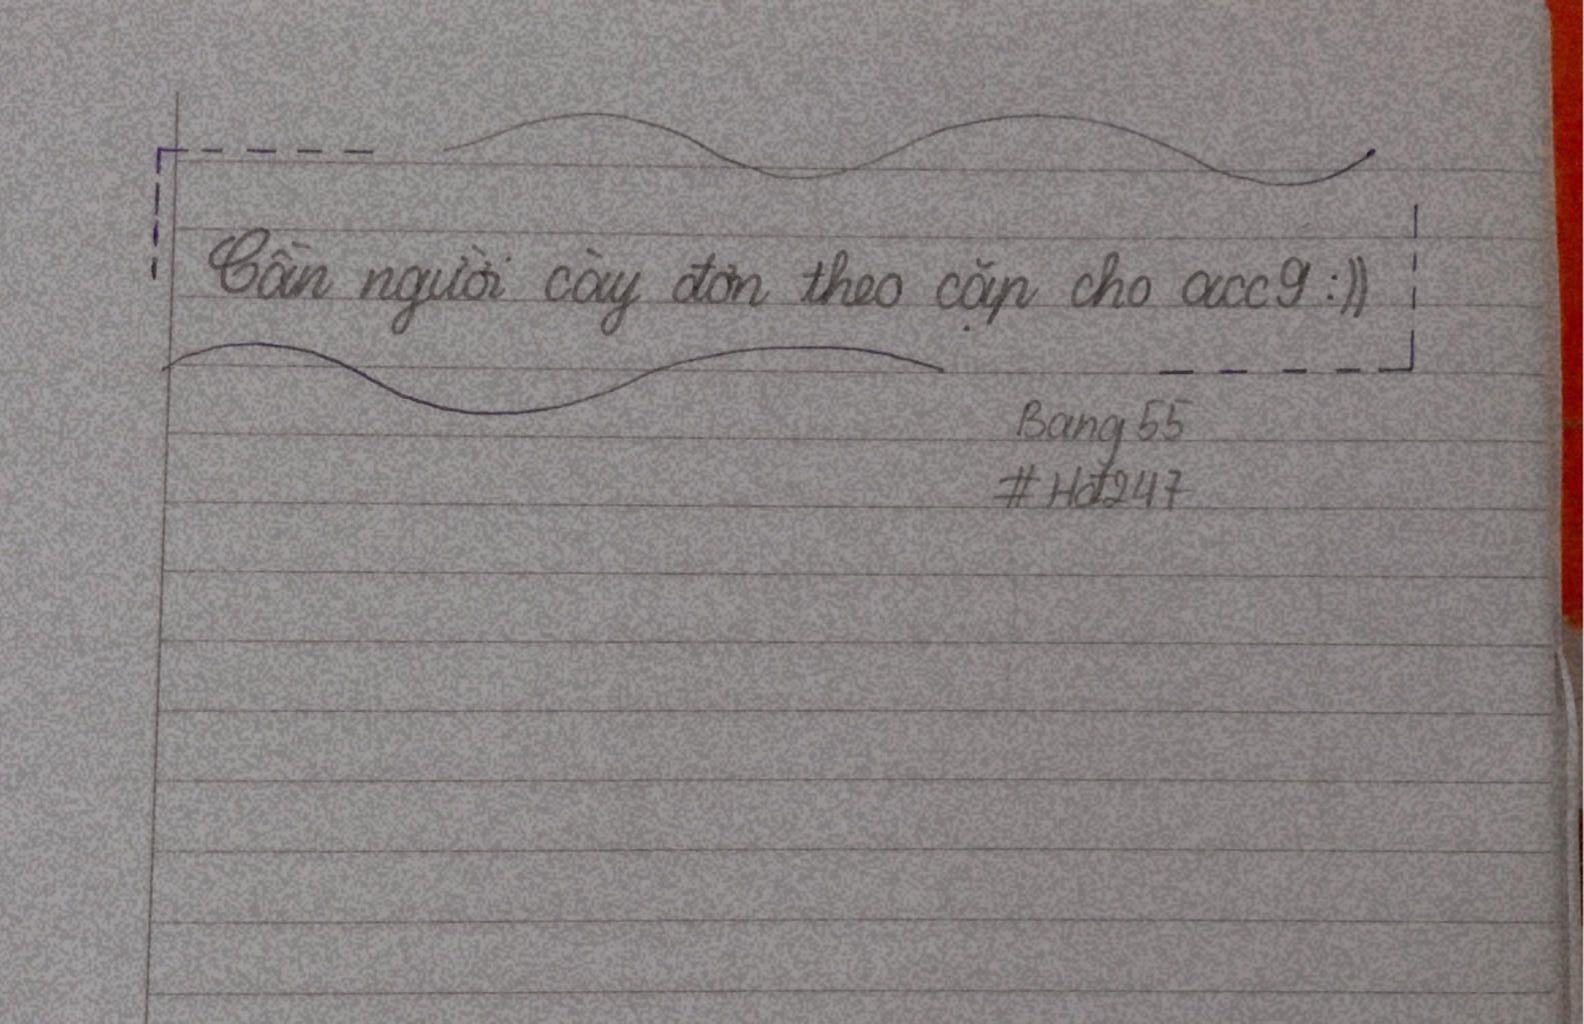 Cần người cày đơn theo cặp cho acc9 :))
Bang 55
#Hđ247